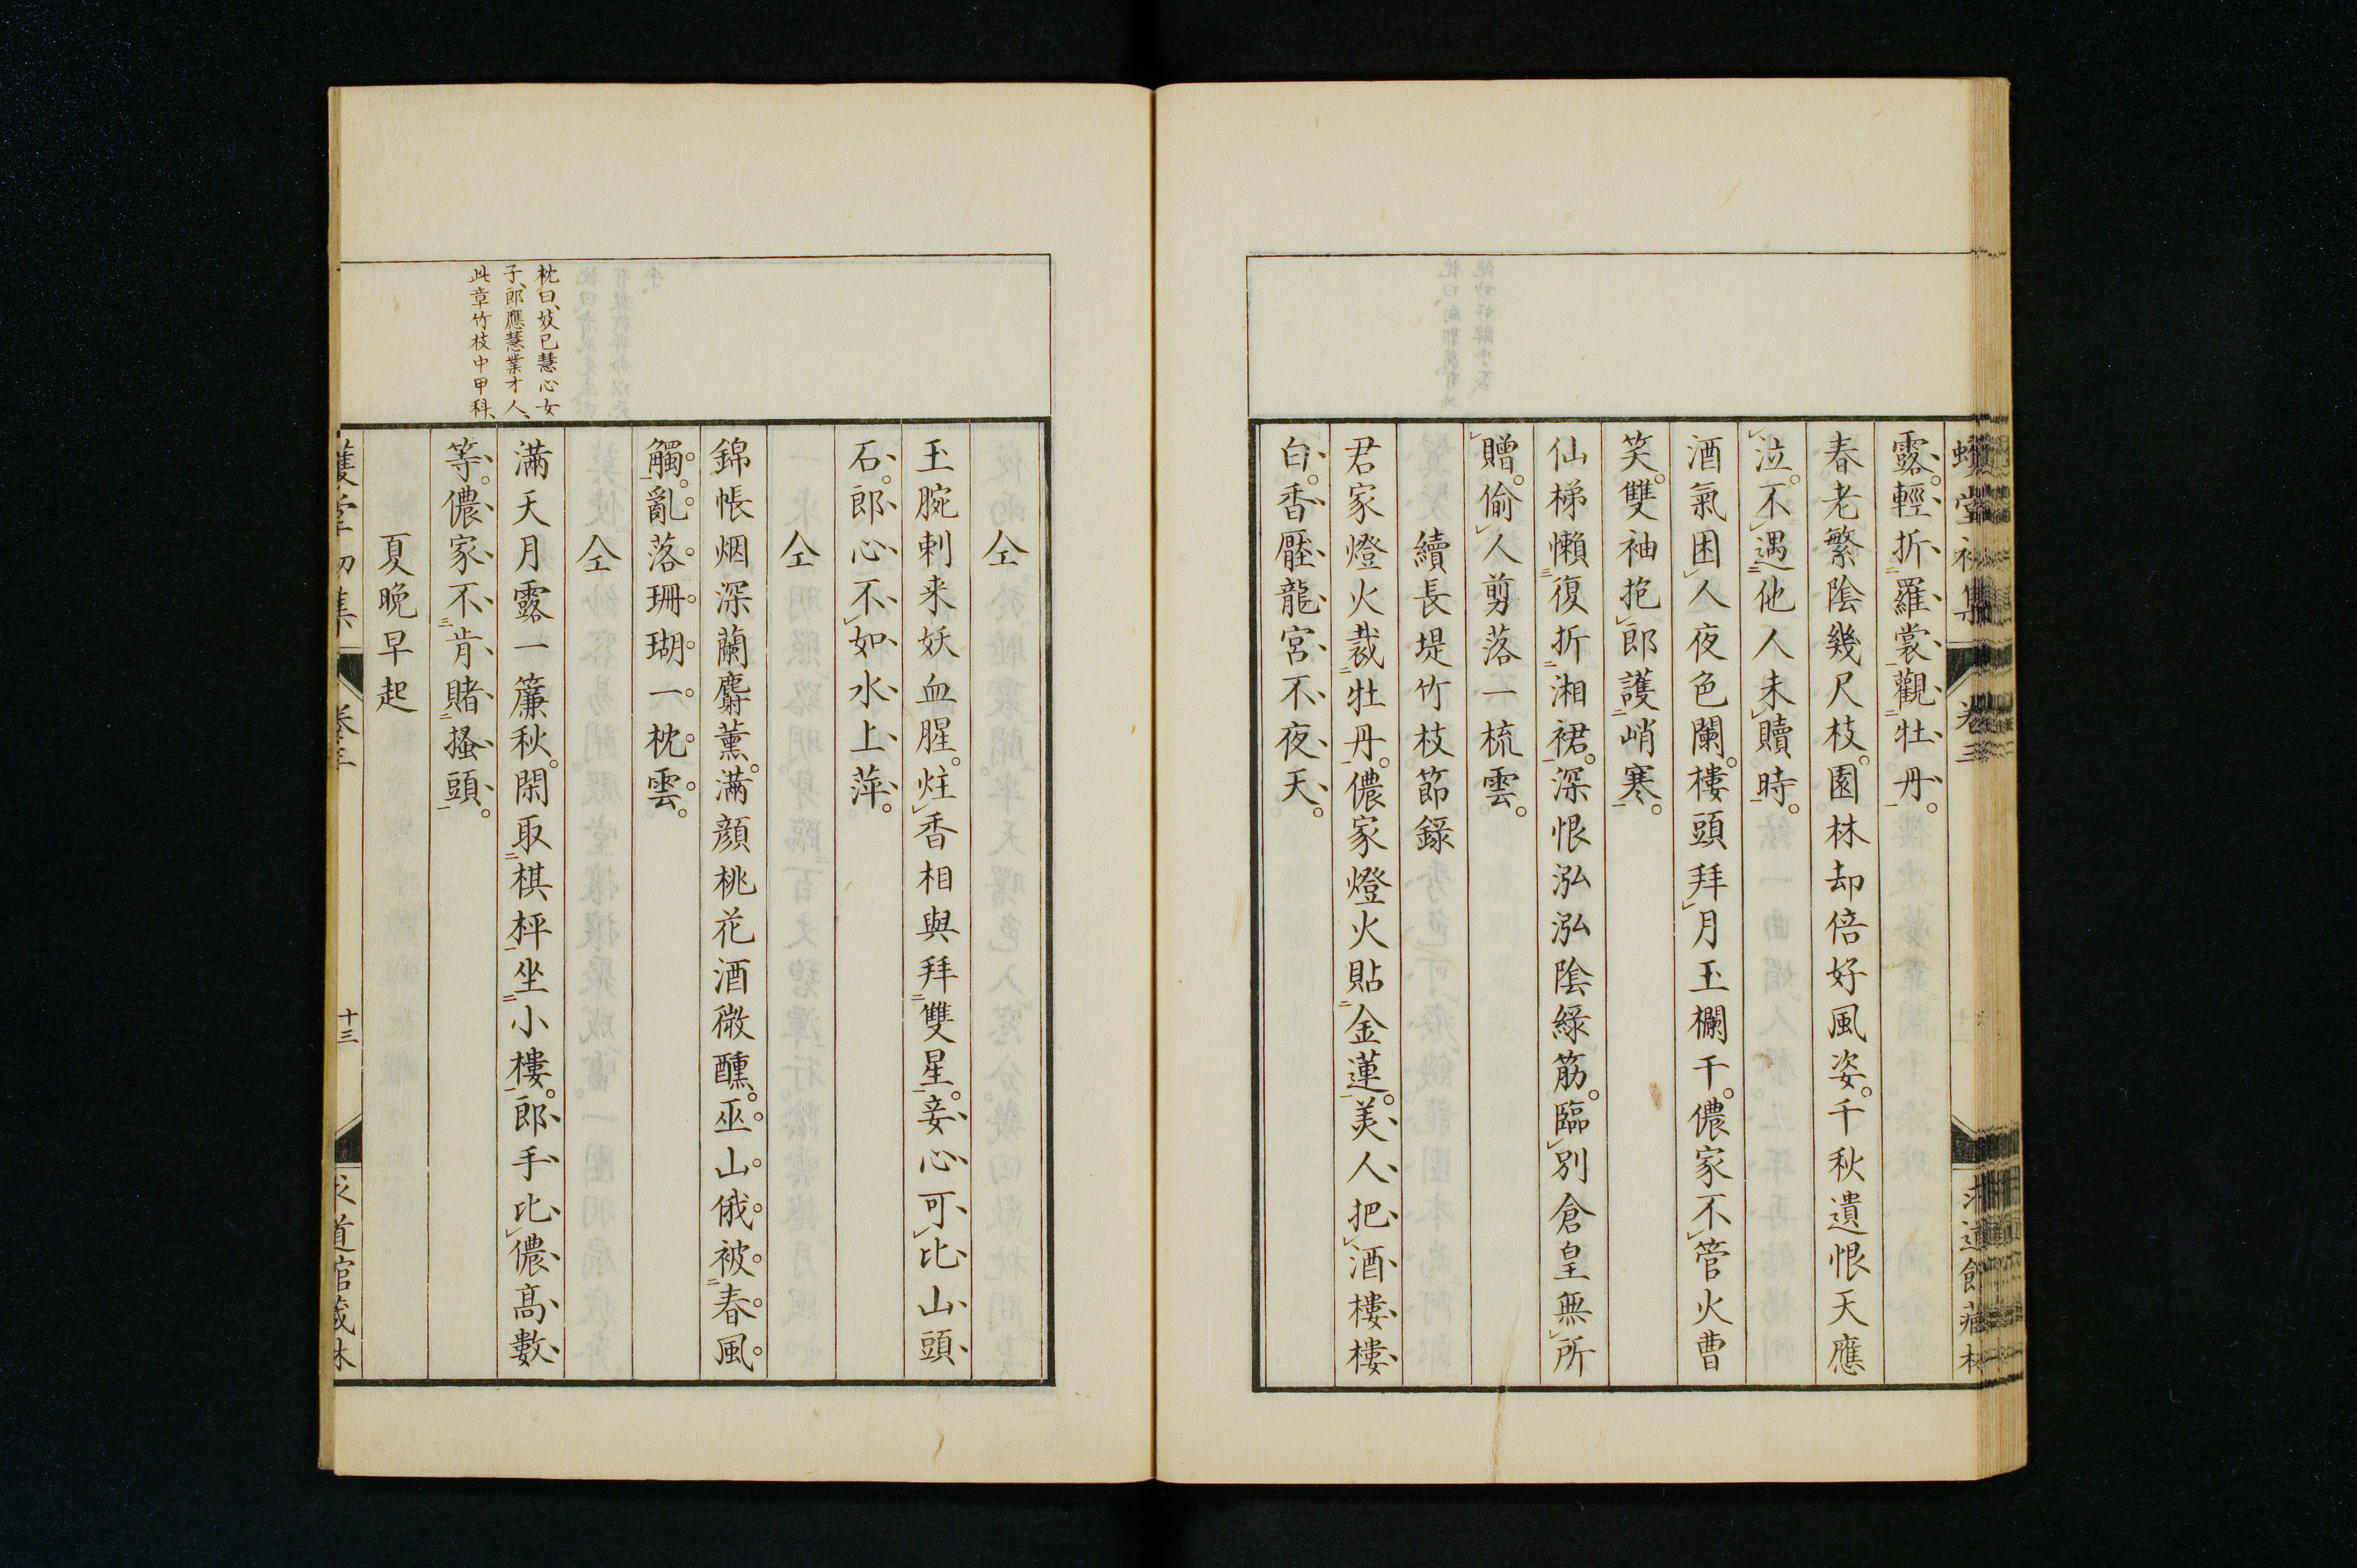 堂初集 卷三
露。輕折羅裳觀牡丹。
春老繁陰幾尺枝。園林却倍好風姿。千秋遺恨天應
泣。不遇他人未贖時。
酒氣困人夜色闌。樓頭拜月玉欄干。儂家不管火曹
笑。雙袖抱郎護峭寒。
仙梯懶復折湘裙。深恨泓泓陰綠筋。臨別倉皇無所
贈。偷人剪落一梳雲。
續長堤竹枝節錄
君家燈火裁牡丹。儂家燈火貼金蓮。美人把酒樓樓
白。香壓龍宮不夜天。
仝
玉腕刺来妖血腥。炷香相與拜雙星。妾心可比山頭
石。郎心不如水上萍。
仝
錦帳烟深蘭麝薰。滿顔桃花酒微醺。巫山俄被春風
觸。亂落珊瑚一枕雲。
仝
滿天月露一簾秋。閑取棋枰坐小樓。郎手比儂高數
等。儂家不肯賭搔頭。
夏晚早起
枕曰、妓已慧心女
子、郎應慧業才人、
此章竹枝中甲科、
十三
道館藏